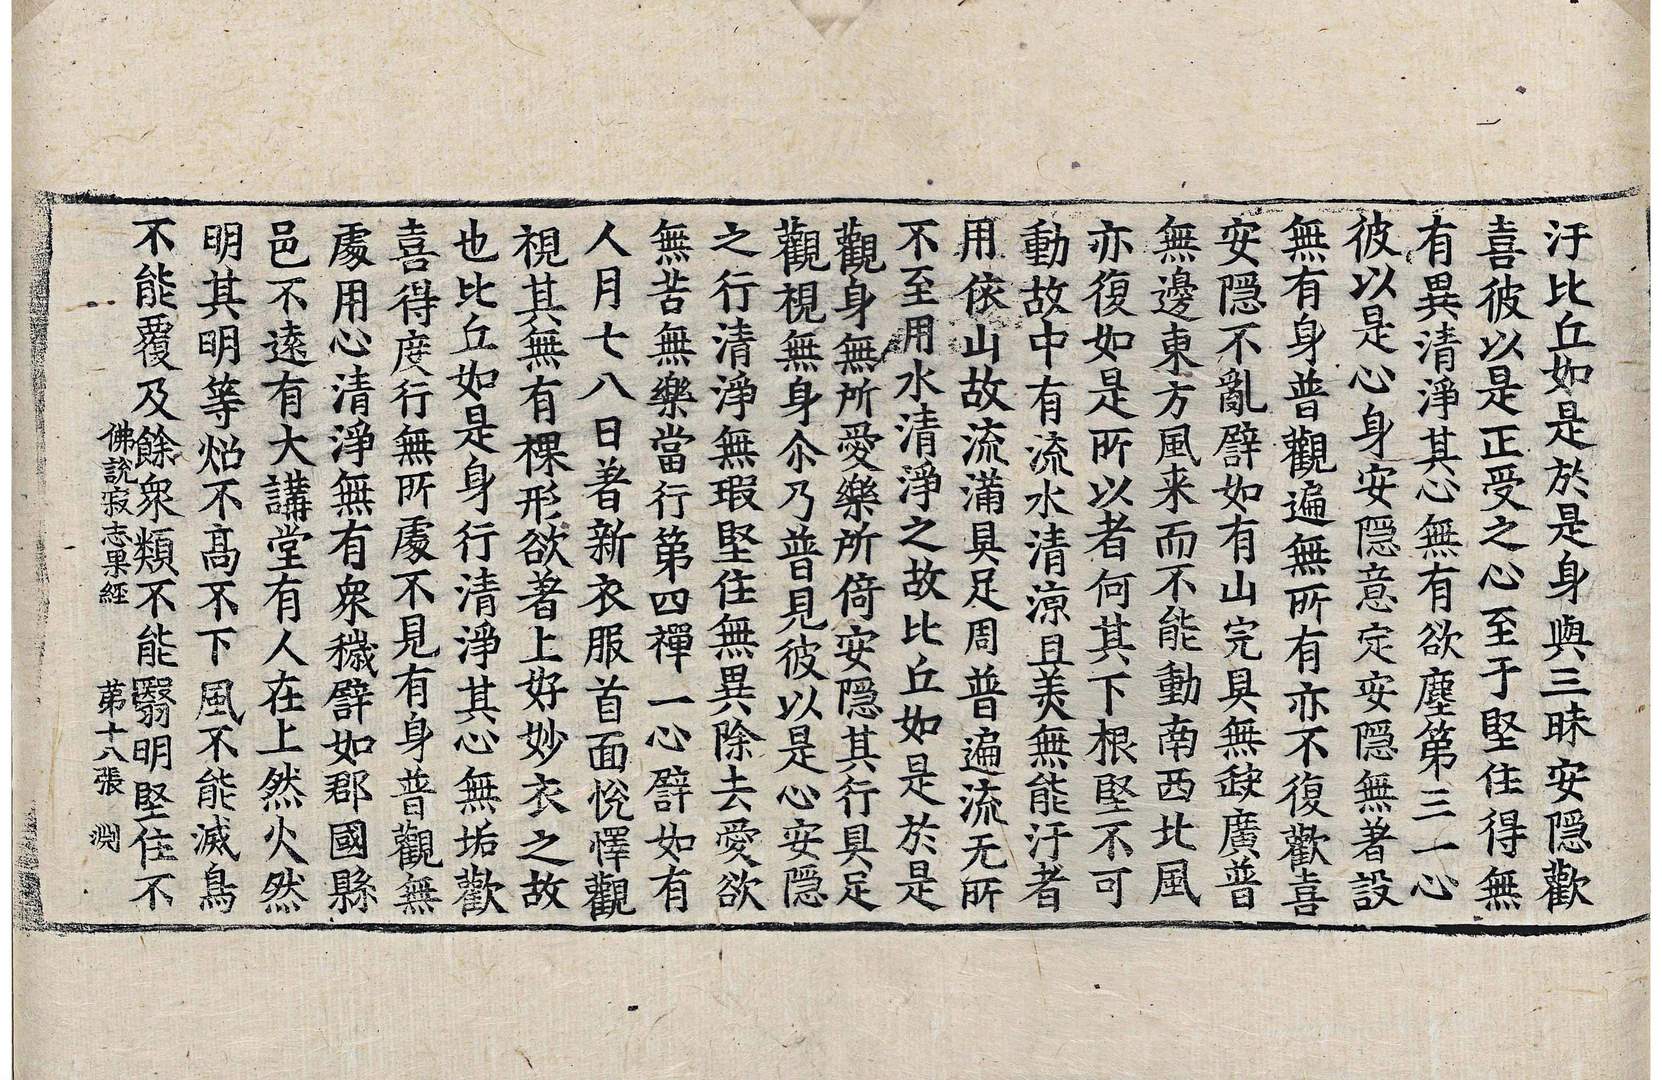 汙比丘如是於是身與三昧安隱歡
喜彼以是正受之心至于堅住得無
有異清淨其心無有欲塵第三一心
彼以是心身安隱意定安隱無著設
無有身普觀遍無所有亦不復歡喜
安隱不亂譬如有山完具無缺廣普
無邊東方風来而不能動南西北風
亦復如是所以者何其下根堅不可
動故中有流水清涼且美無能汙者
用依山故流滿具足周普遍流无所
不至用水清淨之故比丘如是於是
觀身無所愛樂所倚安隱其行具足
觀視無身尒乃普見彼以是心安隱
之行清淨無瑕堅住無異除去愛欲
無苦無樂當行第四禪一心譬如有
人月七八日著新衣服首面悅懌觀
視其無有稞形欲著上好妙衣之故
也比丘如是身行清淨其心無垢歡
喜得度行無所處不見有身普觀無
處用心清淨無有衆穢譬如郡國縣
邑不遠有大講堂有人在上然火然
明其明等炤不高不下風不能滅鳥
不能覆及餘衆類不能翳明堅住不
佛說寂志果經 第十八張 渊